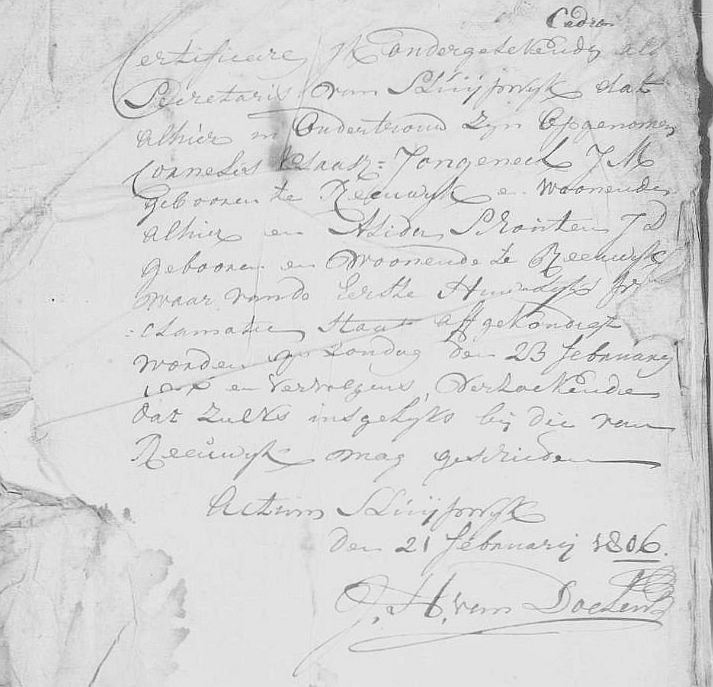 Certificeere Ik ondergetekende als
Secretaris van Sluijpwijk dat
alhier in Ondertrouw zijn Opgenomen
Cornelis Jongeneel J M
gebooren te Reeuwijk en woonende
alhier en Alida Schouten J D
gebooren en woonende te Reeuwijk
waar vande Eerste Huwelijks pro
=clamatie staat affgekondigt
worden op zondag den 23 february
en vervolgens, Verzoekende
dat zulks insgelijks bij die van
Reeuwijk mag geschieden
Actum Sluijpwijk
den 21 februarij 1806.
J. H. van Doelen